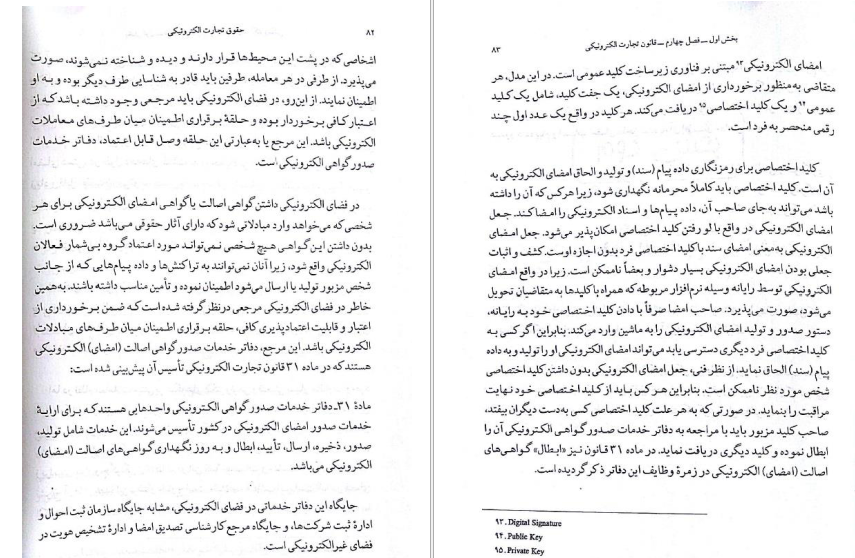 ۸۲ حقوق تجارت الکترونیکی
اشخاصی که در پشت این محیط‌ها قرار دارند و دیده و شناخته نمی‌شوند، صورت
می‌پذیرد. از طرفی در هر معامله، طرفین باید قادر به شناسایی طرف دیگر بوده و به او
اطمینان نمایند. از این‌رو، در فضای الکترونیکی باید مرجعی وجود داشته باشد که از
اعتبار کافی برخوردار بوده و حلقۀ برقراری اطمینان میان طرف‌های معاملات
الکترونیکی باشد. این مرجع یا به‌عبارتی این حلقه وصل قابل اعتماد، دفاتر خدمات
صدور گواهی الکترونیکی است.
در فضای الکترونیکی داشتن گواهی اصالت یا گواهی امضای الکترونیکی برای هر
شخصی که می‌خواهد وارد مبادلاتی شود که دارای آثار حقوقی می‌باشد ضروری است.
بدون داشتن این گواهی هیچ شخصی نمی‌تواند مورد اعتماد گروه بی‌شمار فعالان
الکترونیکی واقع شود، زیرا آنان نمی‌توانند به تراکنش‌ها و داده پیام‌هایی که از جانب
شخص مزبور تولید یا ارسال می‌شود اطمینان نموده و تأمین مناسب داشته باشند. به‌همین
خاطر در فضای الکترونیکی مرجعی درنظر گرفته شده است که ضمن برخورداری از
اعتبار و قابلیت اعتمادپذیری کافی، حلقه برقراری اطمینان میان طرف‌های مبادلات
الکترونیکی باشد. این مرجع، دفاتر خدمات صدور گواهی اصالت (امضای) الکترونیکی
هستند که در ماده ۳۱ قانون تجارت الکترونیکی تأسیس آن پیش‌بینی شده است:
مادۀ ۳۱ـ دفاتر خدمات صدور گواهی الکترونیکی واحدهایی هستند که برای ارایۀ
خدمات صدور امضای الکترونیکی در کشور تأسیس می‌شوند. این خدمات شامل تولید،
صدور، ذخیره، ارسال، تأیید، ابطال و به روز نگهداری گواهی‌های اصالت (امضای)
الکترونیکی می‌باشد.
جایگاه این دفاتر خدماتی در فضای الکترونیکی، مشابه جایگاه سازمان ثبت احوال و
ادارۀ ثبت شرکت‌ها، و جایگاه مرجع کارشناسی تصدیق امضا و ادارۀ تشخیص هویت در
فضای غیرالکترونیکی است.
بخش اول ـ فصل چهارم ـ قانون تجارت الکترونیکی ۸۳
امضای الکترونیکی۹۳ مبتنی بر فناوری زیرساخت کلید عمومی است. در این مدل، هر
متقاضی به‌منظور برخورداری از امضای الکترونیکی، یک جفت کلید، شامل یک کلید
عمومی۹۴ و یک کلید اختصاصی۹۵ دریافت می‌کند. هر کلید در واقع یک عدد اول چند
رقمی منحصر به فرد است.
کلید اختصاصی برای رمزنگاری داده پیام (سند) و تولید و الحاق امضای الکترونیکی به
آن است. کلید اختصاصی باید کاملاً محرمانه نگهداری شود، زیرا هرکس که آن را داشته
باشد می‌تواند به‌جای صاحب آن، داده پیام‌ها و اسناد الکترونیکی را امضا کند. جعل
امضای الکترونیکی در واقع با لو رفتن کلید اختصاصی امکان‌پذیر می‌شود. جعل امضای
الکترونیکی به‌معنی امضای سند با کلید اختصاصی فرد بدون اجازه اوست. کشف و اثبات
جعلی بودن امضای الکترونیکی بسیار دشوار و بعضاً ناممکن است. زیرا در واقع امضای
الکترونیکی توسط رایانه وسیله نرم‌افزار مربوطه که همراه با کلیدها به متقاضیان تحویل
می‌شود، صورت می‌پذیرد. صاحب امضا صرفاً با دادن کلید اختصاصی خود به رایانه،
دستور صدور و تولید امضای الکترونیکی را به ماشین وارد می‌کند. بنابراین اگر کسی به
کلید اختصاصی فرد دیگری دسترسی یابد می‌تواند امضای الکترونیکی او را تولید و به داده
پیام (سند) الحاق نماید. از نظر فنی، جعل امضای الکترونیکی بدون داشتن کلید اختصاصی
شخص مورد نظر ناممکن است. بنابراین هر کس باید از کلید اختصاصی خود نهایت
مراقبت را بنماید. در صورتی که به هر علت کلید اختصاصی کسی به‌دست دیگران بیفتد،
صاحب کلید مزبور باید با مراجعه به دفاتر خدمات صدور گواهی الکترونیکی آن را
ابطال نموده و کلید دیگری دریافت نماید. در ماده ۳۱ قانون نیز «ابطال» گواهی‌های
اصالت (امضای) الکترونیکی در زمرۀ وظایف این دفاتر ذکر گردیده است.
۹۳. Digital Signature
۹۴. Public Key
۹۵. Private Key